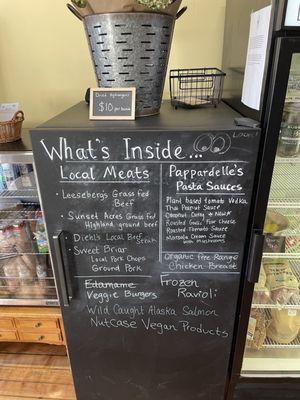 Dried Hydrangeas
$10
per bunch
What's Inside...
LOCAL
Local Meats
Leeseberg's Grass fed
Beef
Sunset Acres Grass fed
Highland ground beef
Diehl's Local Beef
Steak
Sweet Briar
Local Pork Chops
Ground Pork
Pappardelle's
Pasta Sauces
Plant based tomato Vodka
Thai Peanut Sauce
Coconut Curry
Roasted Garlic Four Cheese
Roasted Tomato
Marsala Cream Sauce
with mushrooms
Organic Free Range
Chicken Breast
Edamame
Veggie Burgers
Frozen
Ravioli
Wild Caught Alaska Salmon
NutCase Vegan Products